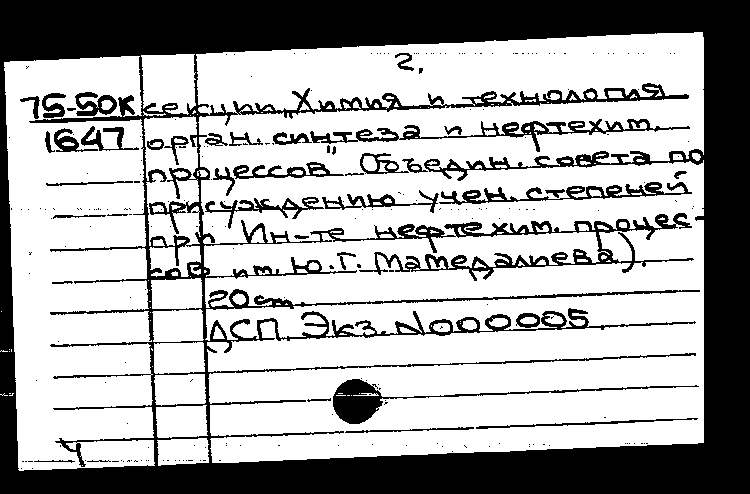 2.
75-50К секции „Химия и технология
1647 орган. синтеза и нефтехим.
процессов" Объедин. совета по
присуждению учен. степеней
при Ин-те нефтехим. процес-
сов им. Ю.Г. Мамедалиева).
20cm.
ДСП. Экз. N000005.